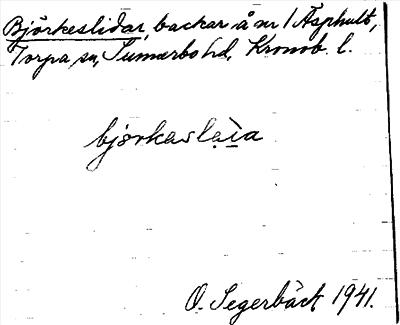 Björkeslidar, backar å nr 1 Äsphult,
Torpa sn, Sunnerbo hd, Kronob. l.
björkaslàıa
O. Segerbäck 1941.